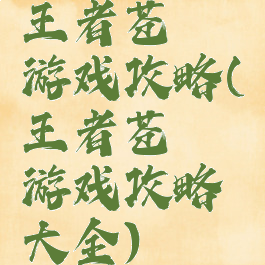 王者苍
游戏攻略(
王者苍
游戏攻略
大全)